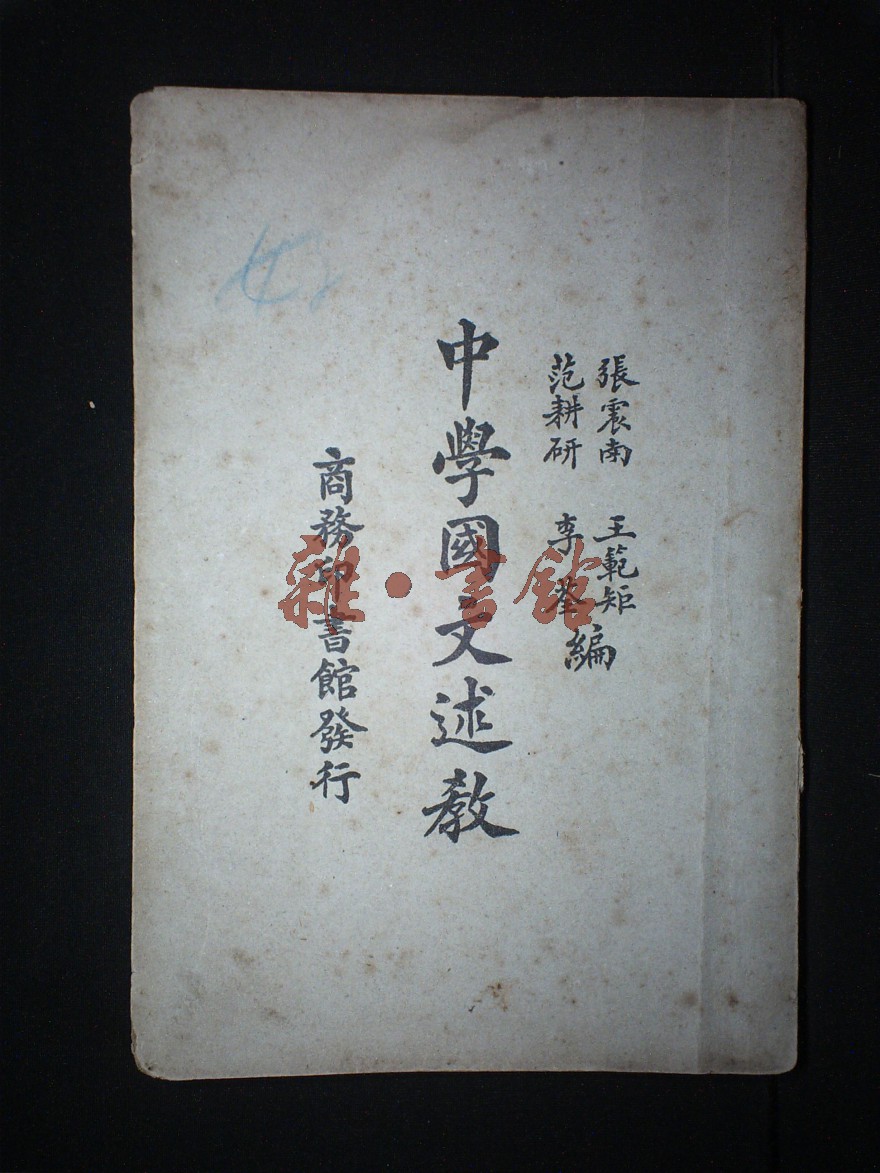 張震南 王範矩
范耕研 李荃 編
中學國文述教
商務印書館發行
雜·書館